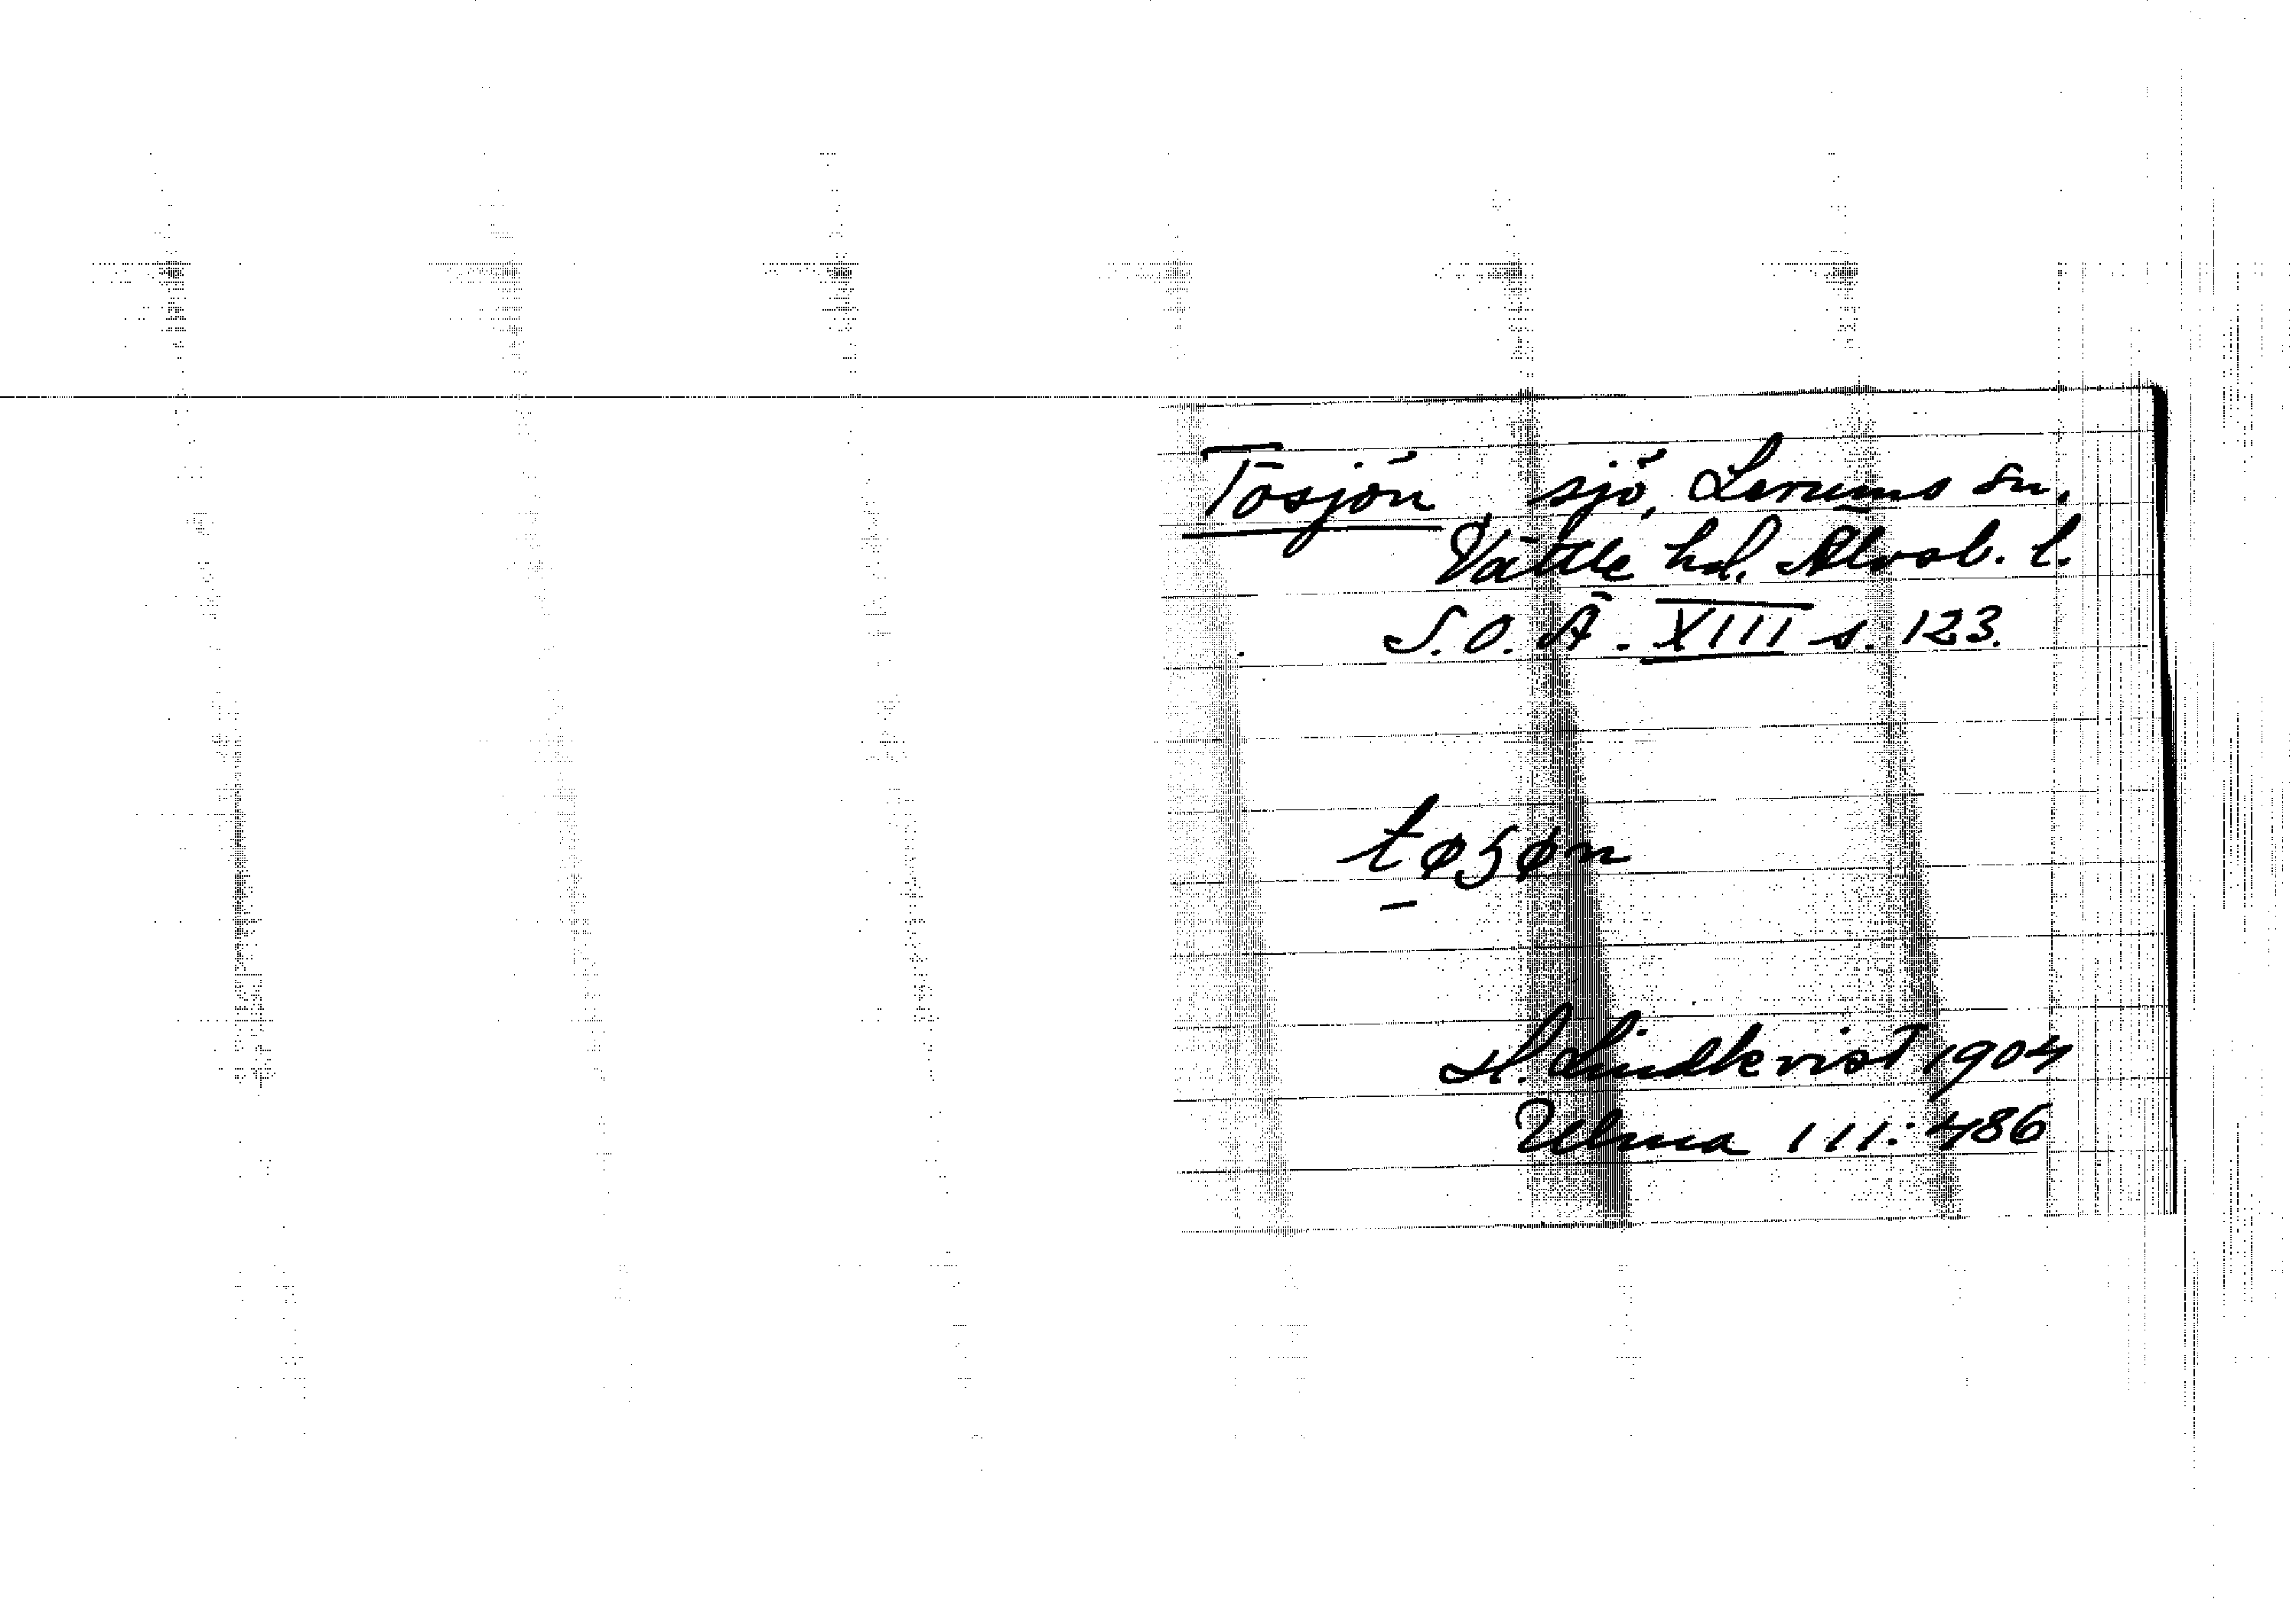 Tösjön, sjö, Lerums sn,
Vättle hd. Älvsb. l.
S.O.Ä. XIII s. 123.
tøʒøn
H. Lindkvist 1904
Ulma 111:486